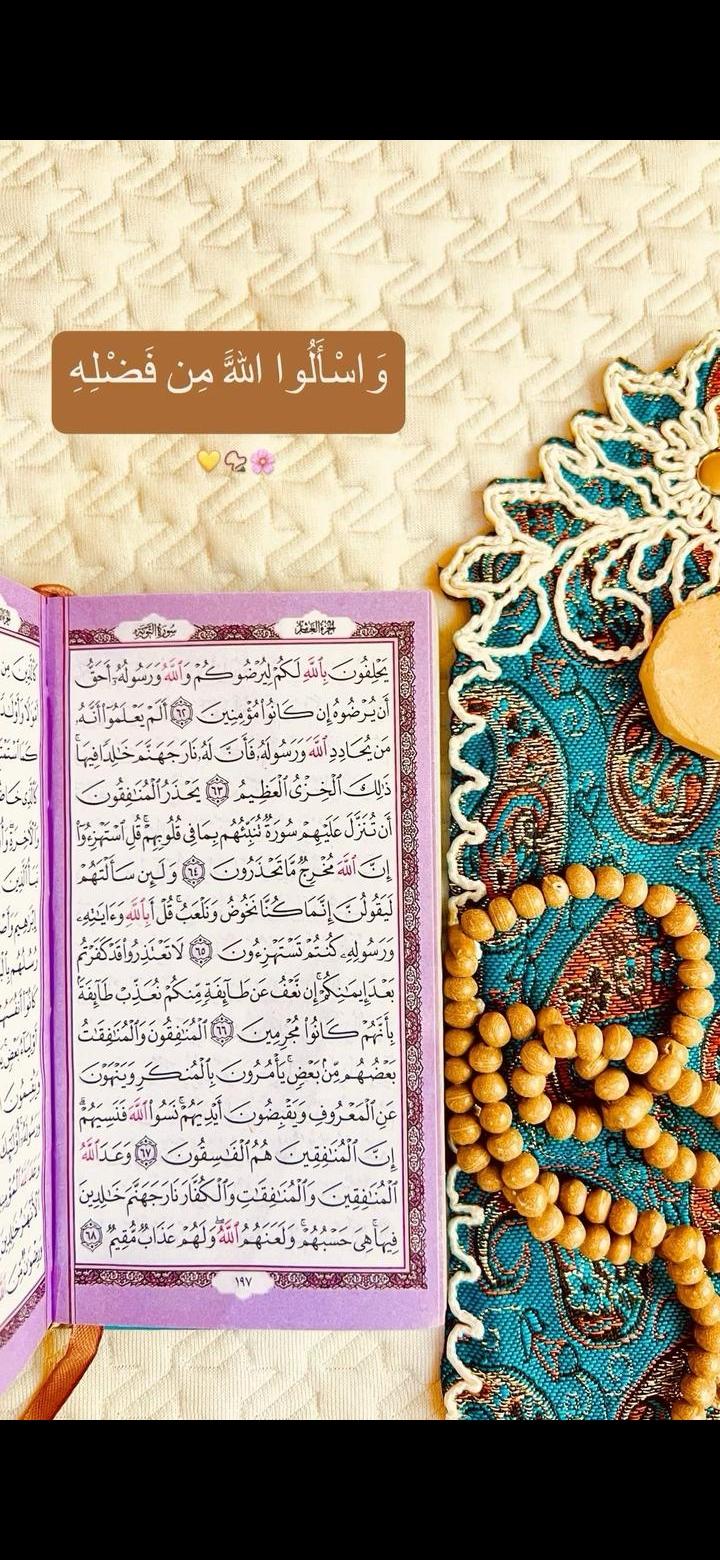 وَاسْأَلُوا اللَّهَ مِن فَضْلِهِ
سورة التوبة
الجزء العاشر
يَحْلِفُونَ بِاللَّهِ لَكُمْ لِيُرْضُوكُمْ وَاللَّهُ وَرَسُولُهُ أَحَقُّ
أَن يُرْضُوهُ إِن كَانُوا مُؤْمِنِينَ ٦٢ أَلَمْ يَعْلَمُوا أَنَّهُ
مَن يُحَادِدِ اللَّهَ وَرَسُولَهُ فَأَنَّ لَهُ نَارَ جَهَنَّمَ خَالِدًا فِيهَا
ذَٰلِكَ الْخِزْيُ الْعَظِيمُ ٦٣ يَحْذَرُ الْمُنَافِقُونَ
أَن تُنَزَّلَ عَلَيْهِمْ سُورَةٌ تُنَبِّئُهُم بِمَا فِي قُلُوبِهِمْ قُلِ اسْتَهْزِءُوا
إِنَّ اللَّهَ مُخْرِجٌ مَّا تَحْذَرُونَ ٦٤ وَلَئِن سَأَلْتَهُمْ
لَيَقُولُنَّ إِنَّمَا كُنَّا نَخُوضُ وَنَلْعَبُ قُلْ أَبِاللَّهِ وَءَايَاتِهِ
وَرَسُولِهِ كُنتُمْ تَسْتَهْزِءُونَ ٦٥ لَا تَعْتَذِرُوا قَدْ كَفَرْتُم
بَعْدَ إِيمَانِكُمْ إِن نَّعْفُ عَن طَائِفَةٍ مِّنكُمْ نُعَذِّبْ طَائِفَةً
بِأَنَّهُمْ كَانُوا مُجْرِمِينَ ٦٦ الْمُنَافِقُونَ وَالْمُنَافِقَاتُ
بَعْضُهُم مِّن بَعْضٍ يَأْمُرُونَ بِالْمُنكَرِ وَيَنْهَوْنَ
عَنِ الْمَعْرُوفِ وَيَقْبِضُونَ أَيْدِيَهُمْ نَسُوا اللَّهَ فَنَسِيَهُمْ
إِنَّ الْمُنَافِقِينَ هُمُ الْفَاسِقُونَ ٦٧ وَعَدَ اللَّهُ
الْمُنَافِقِينَ وَالْمُنَافِقَاتِ وَالْكُفَّارَ نَارَ جَهَنَّمَ خَالِدِينَ
فِيهَا هِيَ حَسْبُهُمْ وَلَعَنَهُمُ اللَّهُ وَلَهُمْ عَذَابٌ مُّقِيمٌ ٦٨
١٩٧